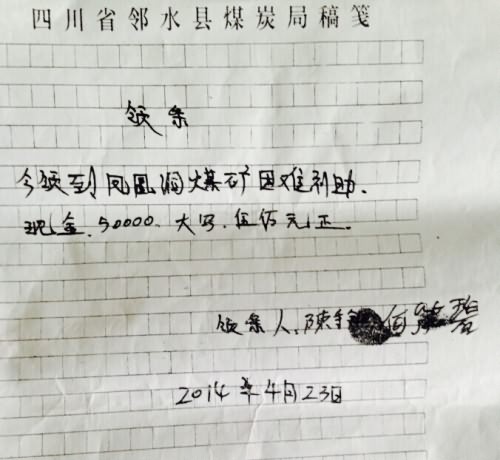 四川省邻水县煤炭局稿笺
领条
今领到凤凰洞煤矿困难补助.
现金.50000.大写.伍仿元正.
领条人.陈 何 碧
2014年4月23日